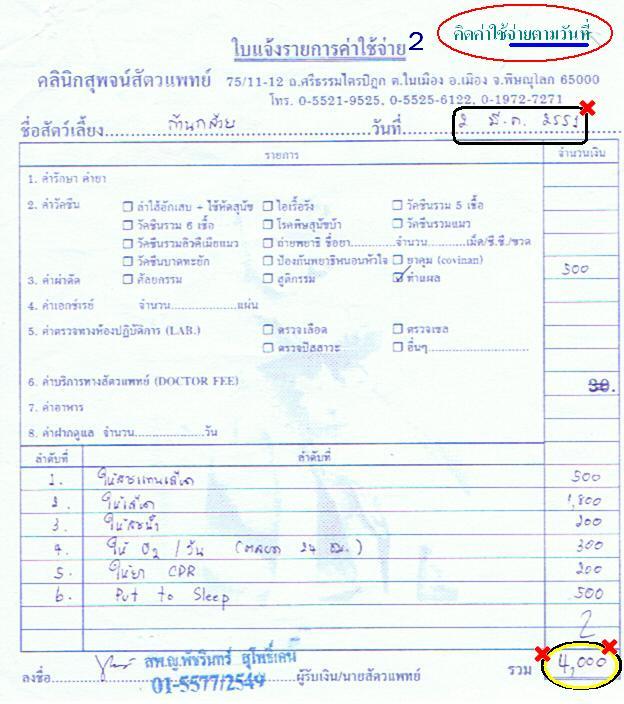 คิดค่าใช้จ่ายตามวันที่
ใบแจ้งรายการค่าใช้จ่าย 2
คลินิกสุพจน์สัตวแพทย์ 75/11-12 ถ.ศรีธรรมไตรปิฎก ต.ในเมือง อ.เมือง จ.พิษณุโลก 65000
โทร. 0-5521-9525, 0-5525-6122, 0-1972-7271
ชื่อสัตว์เลี้ยง ก้านกล้วย วันที่ 2 มี.ค. 2551
รายการ จำนวนเงิน
1. ค่ารักษา ค่ายา
2. ค่าวัคซีน ลำไส้อักเสบ + ไข้หัดสุนัข ไอเรื้อรัง วัคซีนรวม 5 เชื้อ
วัคซีนรวม 6 เชื้อ โรคพิษสุนัขบ้า วัคซีนรวมแมว
วัคซีนรวมลิวคีเมียแมว ถ่ายพยาธิ ชื่อยา..............จำนวน.............เม็ด/ซี.ซี./ขวด
วัคซีนบาดทะยัก ป้องกันพยาธิหนอนหัวใจ ยาคุม (covinan)
3. ค่าผ่าตัด ศัลยกรรม สูติกรรม ทำแผล 300
4. ค่าเอกซ์เรย์ จำนวน....................แผ่น
5. ค่าตรวจทางห้องปฏิบัติการ (LAB.) ตรวจเลือด ตรวจเซล
ตรวจปัสสาวะ อื่นๆ
6. ค่าบริการทางสัตวแพทย์ (DOCTOR FEE)
7. ค่าอาหาร
8. ค่าฝากดูแล จำนวน....................วัน
ลำดับที่ ลำดับที่
1. ให้สารแทนเลือด 500
2. ให้เลือด 1,800
3. ให้สารน้ำ 200
4. ให้ O2 / วัน (ตลอด 24 ชม.) 300
5. ให้ยา CPR 200
6. Put to Sleep 500
2
ลงชื่อ สพ.ญ.พัชรินทร์ ผู้รับเงิน/นายสัตวแพทย์ รวม 4,000
01-5577/2549